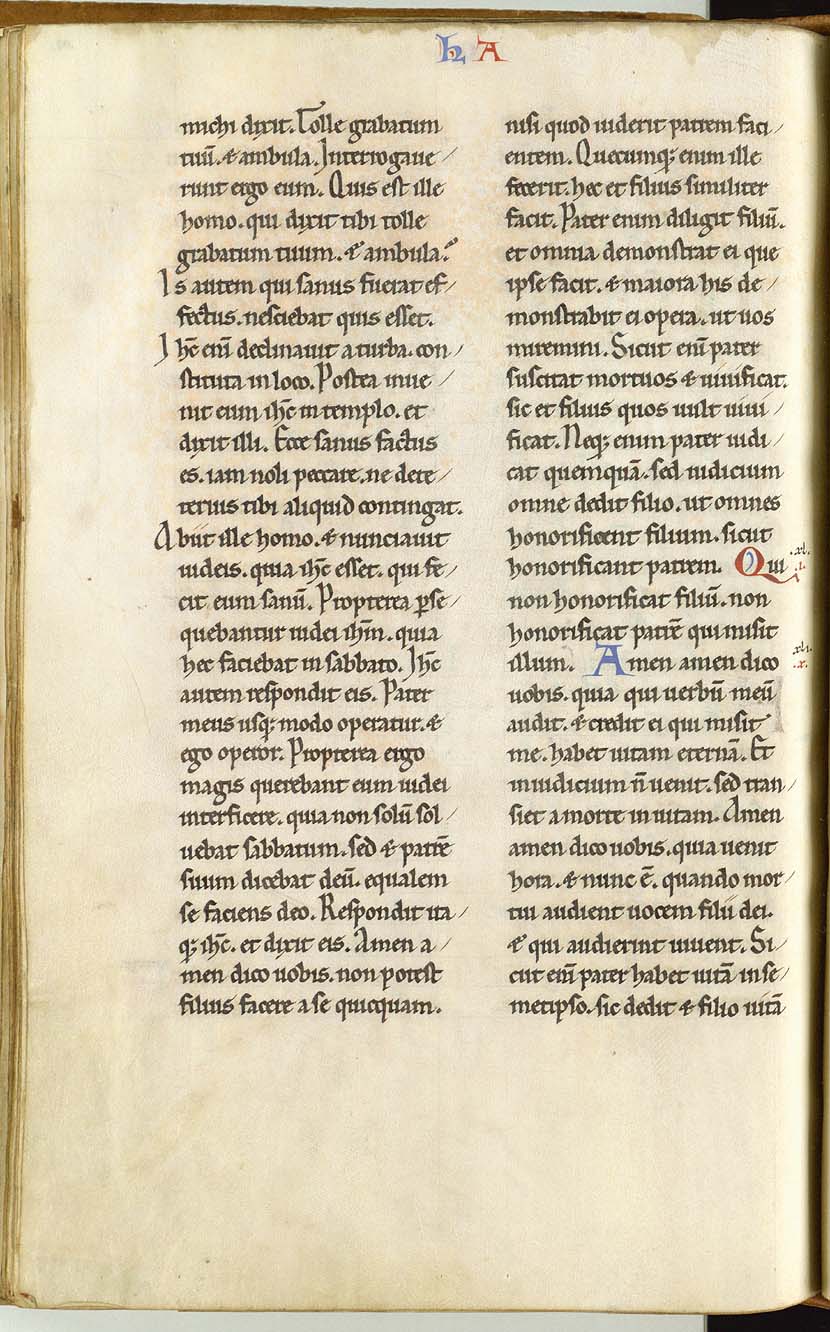 h A
michi dixit. Tolle grabatum
tuū. & ambula. Interrogaue/
runt ergo eum. Quis est ille
homo. qui dixit tibi tolle
grabatum tuum. & ambula?
Is autem qui sanus fuerat ef/
fectus. nesciebat quis esset.
Ihc̄ eni᷒ declinauit a turba. con/
stituta in loco. Postea inue/
nit eum ihc̄ in templo. et
dixit illi. Ecce sanus factus
es. iam noli peccare. ne dete/
terius tibi aliquid contingat.
Abiit ille homo. & nunciauit
iudeis. quia ihc̄ esset. qui fe/
cit eum sanū. Propterea ꝑse/
quebantur iudei ihm̄. quia
hec faciebat in sabbato. Ihc̄
autem respondit eis. Pater
meus usq; modo operatur. &
ego operor. Propterea ergo
magis querebant eum iudei
interficere. quia non solū sol/
uebat sabbatum. sed & patrē
suum dicebat deū. equalem
se faciens deo. Respondit ita/
q; ihc̄. et dixit eis. Amen a/
men dico uobis. non potest
filius facere a se quicquam.
nisi quod uiderit patrem faci/
entem. Quecumq; enim ille
fecerit. hec et filius similiter
facit. Pater enim diligit filiū.
et omnia demonstrat ei que
ipse facit. & maiora his de/
monstrabit ei opera. ut uos
miremini. Sicut eni᷒ pater
suscitat mortuos & uiuificat.
sic et filius quos uult uiui/
ficat. Neq; enim pater iudi/
cat quemquā. sed iudicium
omne dedit filio. ut omnes
honorificent filium. sicut
honorificant patrem. Qui .xl. .i.
non honorificat filiū. non
honorificat patrē qui misit
illum. Amen amen dico .xli. .x.
uobis. quia qui uerbū meū
audit. & credit ei qui misit
me. habet uitam eternā. Et
in iudicium n̄ uenit. sed tran/
siet a morte in uitam. Amen
amen dico uobis. quia uenit
hora. & nunc ē. quando mor/
tui audient uocem filii dei.
& qui audierint uiuent. Si/
cut eni᷒ pater habet uitā in se/
metipso. sic dedit & filio uitā